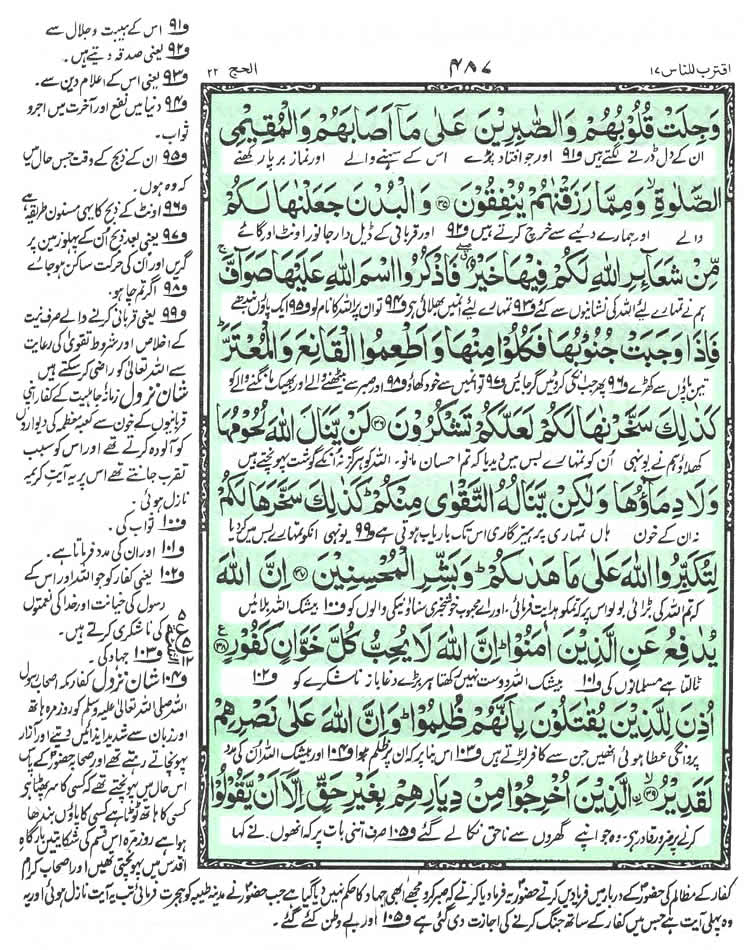 اقترب للناس ۱۷
۴۸۷
الحج ۲۲
وَجِلَتْ قُلُوْبُهُمْ وَالصّٰبِرِيْنَ عَلٰى مَاۤ اَصَابَهُمْ وَالْمُقِيْمِى
ان کے دل ڈرنے لگتے ہیں و۹۱ اور جو افتاد پڑے اس کے سہنے والے اور نماز برپا رکھنے
الصَّلٰوةِ ۙ وَمِمَّا رَزَقْنٰهُمْ يُنْفِقُوْنَ ﴿۳۵﴾ وَالْبُدْنَ جَعَلْنٰهَا لَكُمْ
والے اور ہمارے دیے سے خرچ کرتے ہیں و۹۲ اور قربانی کے ڈیل دار جانور اونٹ اور گائے
مِّنْ شَعَآئِرِ اللّٰهِ لَكُمْ فِيْهَا خَيْرٌ ۖ فَاذْكُرُوا اسْمَ اللّٰهِ عَلَيْهَا صَوَآفَّ ۚ
ہم نے تمہارے لیے اللہ کی نشانیوں سے کئے و۹۳ تمہارے لیے انمیں بھلائی ہے و۹۴ تو ان پر اللہ کا نام لو و۹۵ ایک پاؤں بندھے
فَاِذَا وَجَبَتْ جُنُوْبُهَا فَكُلُوْا مِنْهَا وَاَطْعِمُوا الْقَانِعَ وَالْمُعْتَرَّ ؕ
تین پاؤں سے کھڑے و۹۶ پھر جب انکی کروٹیں گر جائیں و۹۷ تو انمیں سے خود کھاؤ و۹۸ اور صبر سے بیٹھنے والے اور بھیک مانگنے والے کو
كَذٰلِكَ سَخَّرْنٰهَا لَكُمْ لَعَلَّكُمْ تَشْكُرُوْنَ ﴿۳۶﴾ لَنْ يَّنَالَ اللّٰهَ لُحُوْمُهَا
کھلاؤ ہم نے یونہی ان کو تمہارے بس میں دیدیا کہ تم احسان مانو۔ اللہ کو ہرگز نہ انکے گوشت پہونچتے ہیں
وَلَا دِمَآؤُهَا وَلٰكِنْ يَّنَالُهُ التَّقْوٰى مِنْكُمْ ؕ كَذٰلِكَ سَخَّرَهَا لَكُمْ
نہ ان کے خون ہاں تمہاری پرہیزگاری اس تک باریاب ہوتی ہے و۹۹ یونہی انکو تمہارے بس میں کردیا
لِتُكَبِّرُوا اللّٰهَ عَلٰى مَا هَدٰىكُمْ ؕ وَبَشِّرِ الْمُحْسِنِيْنَ ﴿۳۷﴾ اِنَّ اللّٰهَ
کہ تم اللہ کی بڑائی بولو اس پر کہ تمکو ہدایت فرمائی، اور اے محبوب خوشخبری سناؤ نیکی والوں کو و۱۰۰ بیشک اللہ بلائیں
يُدٰفِعُ عَنِ الَّذِيْنَ اٰمَنُوْا ؕ اِنَّ اللّٰهَ لَا يُحِبُّ كُلَّ خَوَّانٍ كَفُوْرٍ ﴿۳۸﴾
ٹالتا ہے مسلمانوں کی و۱۰۱ بیشک اللہ دوست نہیں رکھتا ہر بڑے دغا باز ناشکرے کو و۱۰۲
اُذِنَ لِلَّذِيْنَ يُقٰتَلُوْنَ بِاَنَّهُمْ ظُلِمُوْا ؕ وَاِنَّ اللّٰهَ عَلٰى نَصْرِهِمْ
پروانگی عطا ہوئی انھیں جن سے کافر لڑتے ہیں و۱۰۳ اس بنا پر کہ ان پر ظلم ہوا و۱۰۴ اور بیشک اللہ ان کی مدد
لَقَدِيْرُ ۙ﴿۳۹﴾ الَّذِيْنَ اُخْرِجُوْا مِنْ دِيَارِهِمْ بِغَيْرِ حَقٍّ اِلَّاۤ اَنْ يَّقُوْلُوْا
کرنے پر ضرور قادر ہے، وہ جو اپنے گھروں سے ناحق نکالے گئے و۱۰۵ صرف اتنی بات پر کہ انھوں نے کہا
و۹۱ اس کے ہیبت و جلال سے
و۹۲ یعنی صدقہ دیتے ہیں۔
و۹۳ یعنی اس کے اعلام دین سے۔
و۹۴ دنیا میں نفع اور آخرت میں اجر و
ثواب۔
و۹۵ ان کے ذبح کے وقت جس حال میں
کہ وہ ہوں۔
و۹۶ اونٹ کے ذبح کا یہی مسنون طریقہ ہے
و۹۷ یعنی بعد ذبح اُن کے پہلو زمین پر
گریں اور ان کی حرکت ساکن ہو جائے
و۹۸ اگر تم چاہو۔
و۹۹ یعنی قربانی کرنے والے صرف نیت
کے اخلاص اور شروط تقویٰ کی رعایت
سے اللہ تعالیٰ کو راضی کر سکتے ہیں
شان نزول زمانۂ جاہلیت کے کفار اپنی
قربانیوں کے خون سے کعبۂ معظمہ کی دیواروں
کو آلودہ کرتے تھے اور اس کو سبب
تقرب جانتے تھے اس پر یہ آیت کریمہ
نازل ہوئی۔
و۱۰۰ ثواب کی۔
و۱۰۱ اور ان کی مدد فرماتا ہے۔
و۱۰۲ یعنی کفار کو جو اللہ اور اس کے
رسول کی خیانت اور خدا کی نعمتوں
کی ناشکری کرتے ہیں۔
و۱۰۳ جہاد کی۔
۵
ع
۵
۱۲
و۱۰۴ شان نزول کفار مکہ اصحاب رسول
اللہ صلی اللہ تعالیٰ علیہ وسلم کو روزمرہ ہاتھ
اور زبان سے شدید ایذائیں دیتے اور آزار
پہونچاتے رہتے تھے اور صحابہ حضور کے پاس
اس حال میں پہونچتے تھے کہ کسی کا سر پھٹا ہے
کسی کا ہاتھ ٹوٹا ہے کسی کا پاؤں بندھا
ہوا ہے روزمرہ اس قسم کی شکایتیں بارگاہِ
اقدس میں پہونچتی تھیں اور اصحاب کرام
کفار کے مظالم کی حضور کے دربار میں فریادیں کرتے حضور یہ فرما دیا کرتے کہ صبر کرو مجھے ابھی جہاد کا حکم نہیں دیا گیا ہے جب حضور نے مدینہ طیبہ کو ہجرت فرمائی تب یہ آیت نازل ہوئی اور یہ
وہ پہلی آیت ہے جس میں کفار کے ساتھ جنگ کرنے کی اجازت دی گئی ہے و۱۰۵ اور بے وطن کئے گئے۔